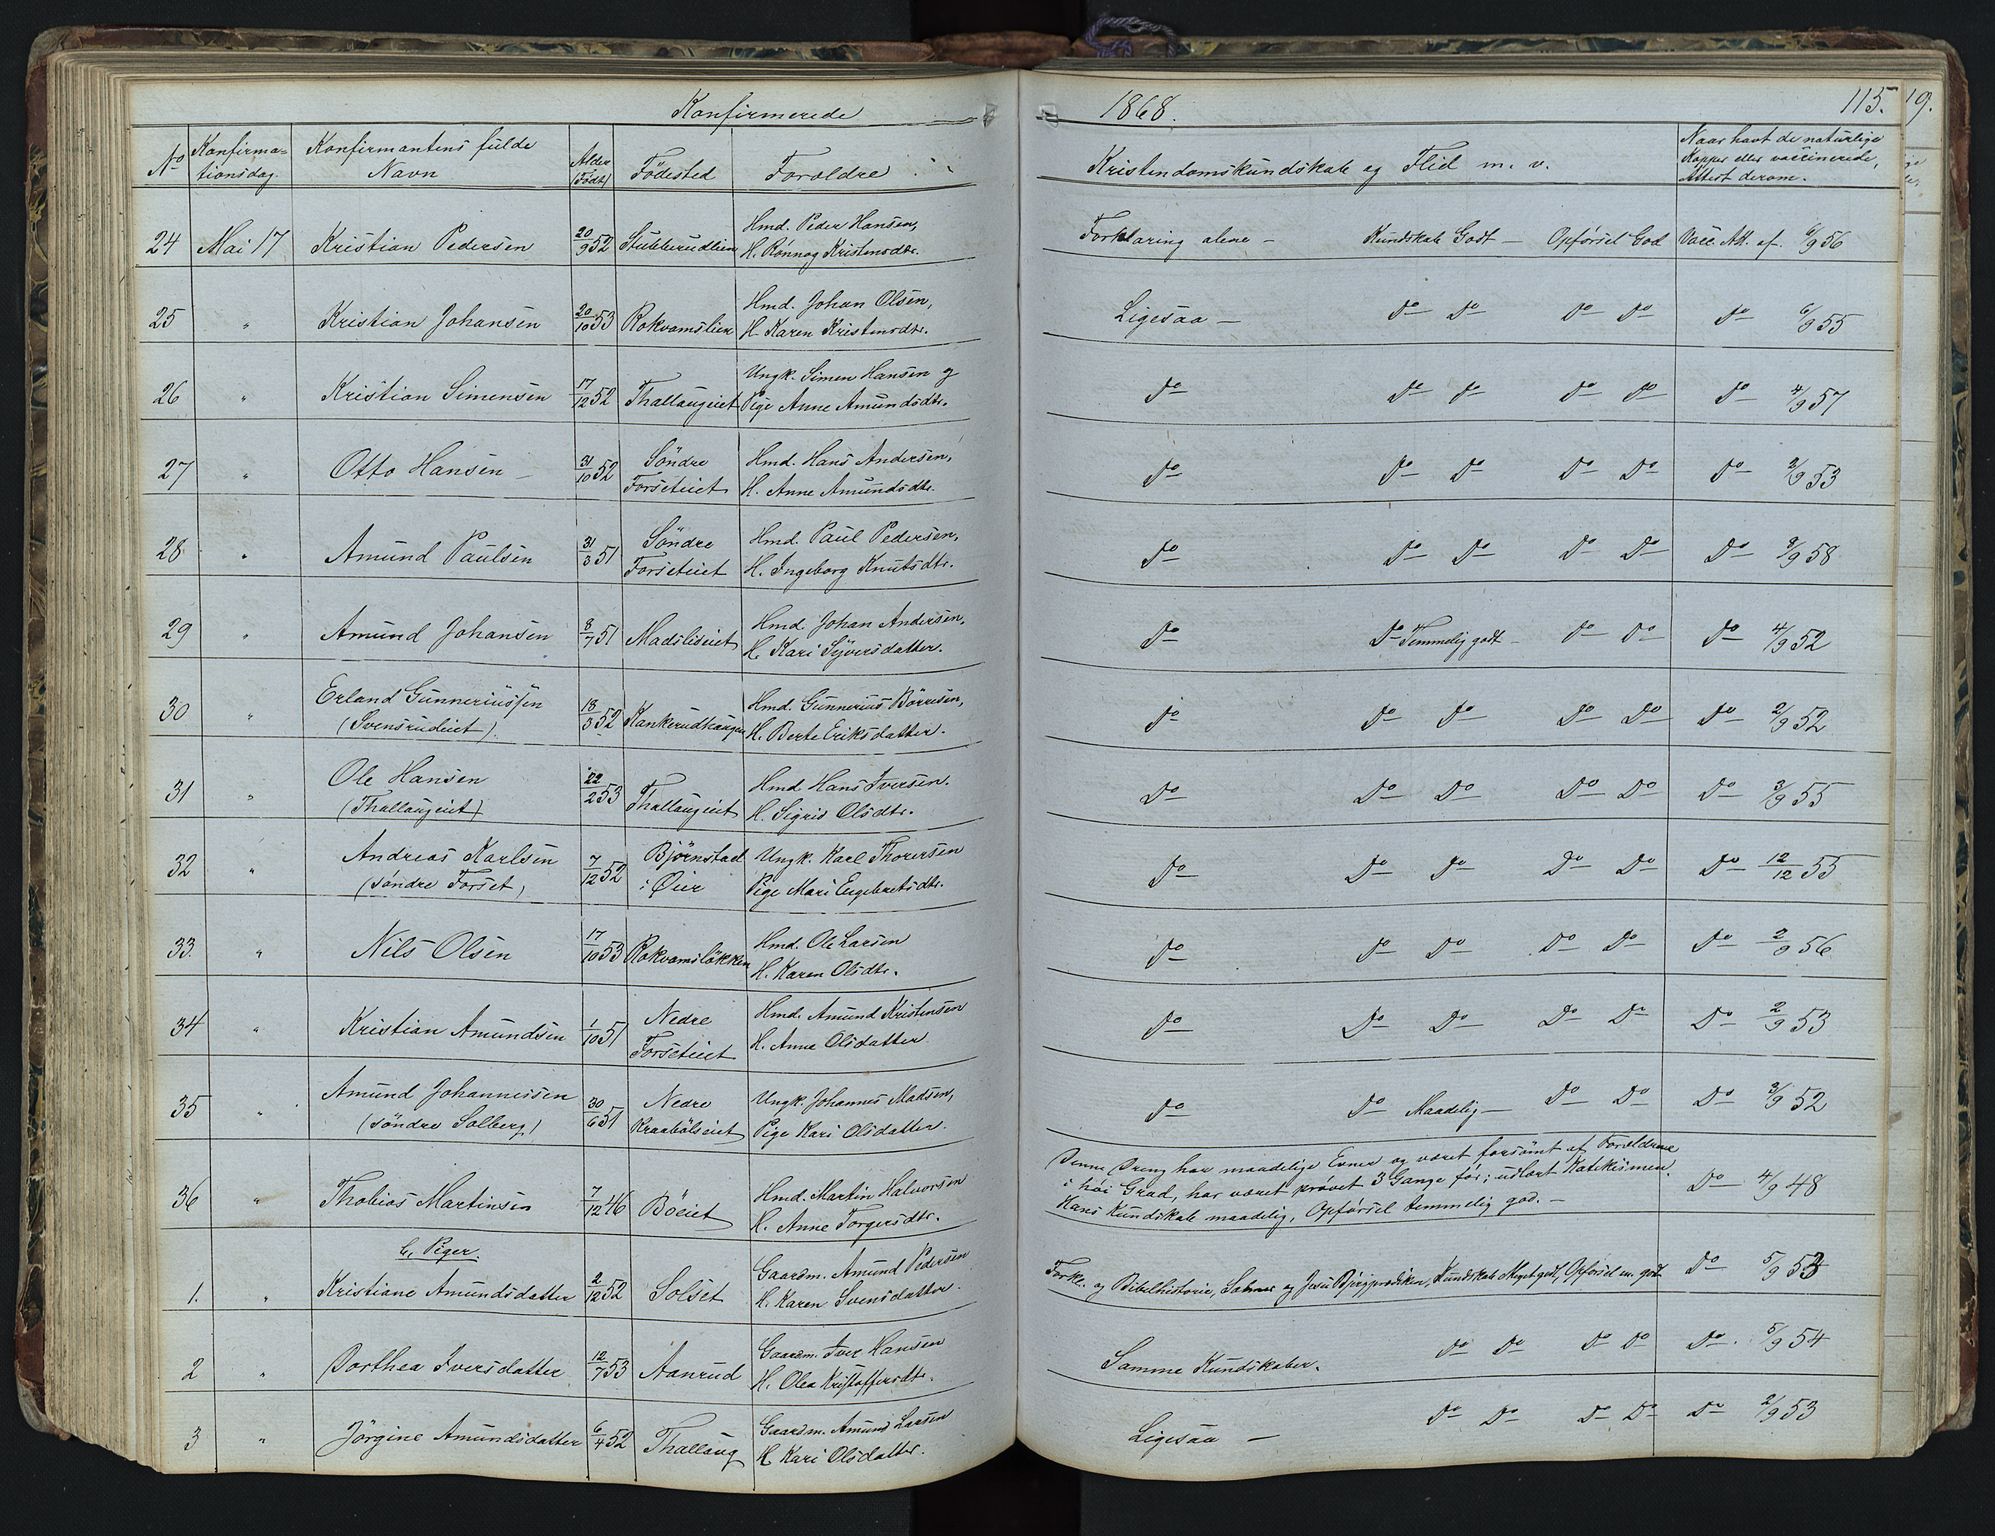 Konfirmerede 1868. 115. 19.
No Konfirma= tionsdag. Konfirmantens fulde Navn Alder (Født) Fødested Forældre Kristendomskundskab og Flid m. v. Naar havt de naturlige Kopper eller vaccinerede, Attest derom.
24 Mai 17 Kristian Pedersen 20/9 52 Stubberudlien Hmd. Peder Hansen, Forklaring alene – Kundskab Godt – Opførsel God Vacc. Att. af 6/9 56
H. Rønnog Kristensdtr.
25 " Kristian Johansen 20/10 53 Rokvamslien Hmd. Johan Olsen, Ligesaa – Do Do Do Do Do 6/9 55
H. Karen Kristensdtr.
26 " Kristian Simensen 17/12 52 Thallaugeiet Ungk. Simen Hansen og Do Do Do Do Do Do 4/9 57
Pige Anne Amundsdtr.
27 " Otto Hansen – 31/10 52 Søndre Hmd. Hans Andersen, Do Do Do Do Do Do 2/9 53
Forseteiet H. Anne Amundsdtr.
28 " Amund Paulsen 31/3 51 Søndre Hmd. Paul Pedersen, Do Do Do Do Do Do 9/9 58
Forseteiet H. Ingeborg Knutsdtr.
29 " Amund Johansen 8/7 51 Madslieiet Hmd. Johan Andersen, Do Do Temmelig godt – Do Do Do 4/9 52
H. Kari Syversdatter.
30 " Erland Gunneriussen 18/3 52 Kankerudhaugen Hmd. Gunnerius Børresen, Do Do Do Do Do Do 2/9 52
(Svensrudeiet). H. Berte Eriksdatter.
31 " Ole Hansen 22/2 53 Thallaugeiet Hmd Hans Iversen. Do Do Do Do Do Do 3/9 55
(Thallaugeiet) H. Sigrid Olsdtr.
32 " Andreas Karlsen 7/12 52 Bjørnstad Ungk. Karl Thorersen Do Do Do Do Do Do 12/12 55
(søndre Forset) i Øier Pige Mari Engebretsdtr.
33. " Nils Olsen 17/10 53 Rokvamsløkken Hmd. Ole Larsen Do Do Do Do Do Do 2/9 56
H. Karen Olsdtr.
34 " Kristian Amundsen 1/10 51 Nedre Hmd. Amund Kristensen Do Do Do Do Do Do 2/9 53
Forseteiet H. Anne Olsdatter
35 " Amund Johannessen 30/6 51 Nedre Ungk. Johannes Madsen, Do Do Maadelig – Do Do Do 3/9 52
(søndre Solberg) Kraabølseiet Pige Kari Olsdatter.
36 " Thobias Martinsen 7/12 46 Bøeiet Hmd. Martin Halvorsen Denne Dreng har maadelige Evner og været forsømt af Forældrene Do 4/9 48
H. Anne Torgersdtr. i høi Grad, har været prøvet 3 Gange før; udlært Katekismen.
Hans Kundskab maadelig, Opførsel temmelig god. –
b, Piger.
1. " Kristiane Amundsdatter 2/12 52 Solset Gaardm. Amund Pedersen Forkl. og Bibelhistorie, Salmer og Jesu Bjergprædiken, Kundskab Meget godt, Opførsel m. god. Do 5/9 53
H. Karen Svensdatter.
2 " Dorthea Iversdatter 12/7 53 Aanrud Gaardm. Iver Hansen Samme Kundskaber. Do Do Do Do Do 5/9 54
H. Olea Kristoffersdtr.
3 " Jørgine Amundsdatter 6/4 52 Thallaug Gaardm. Amund Larsen Ligesaa – Do Do Do Do Do 2/9 53
H Kari Olsdatter.